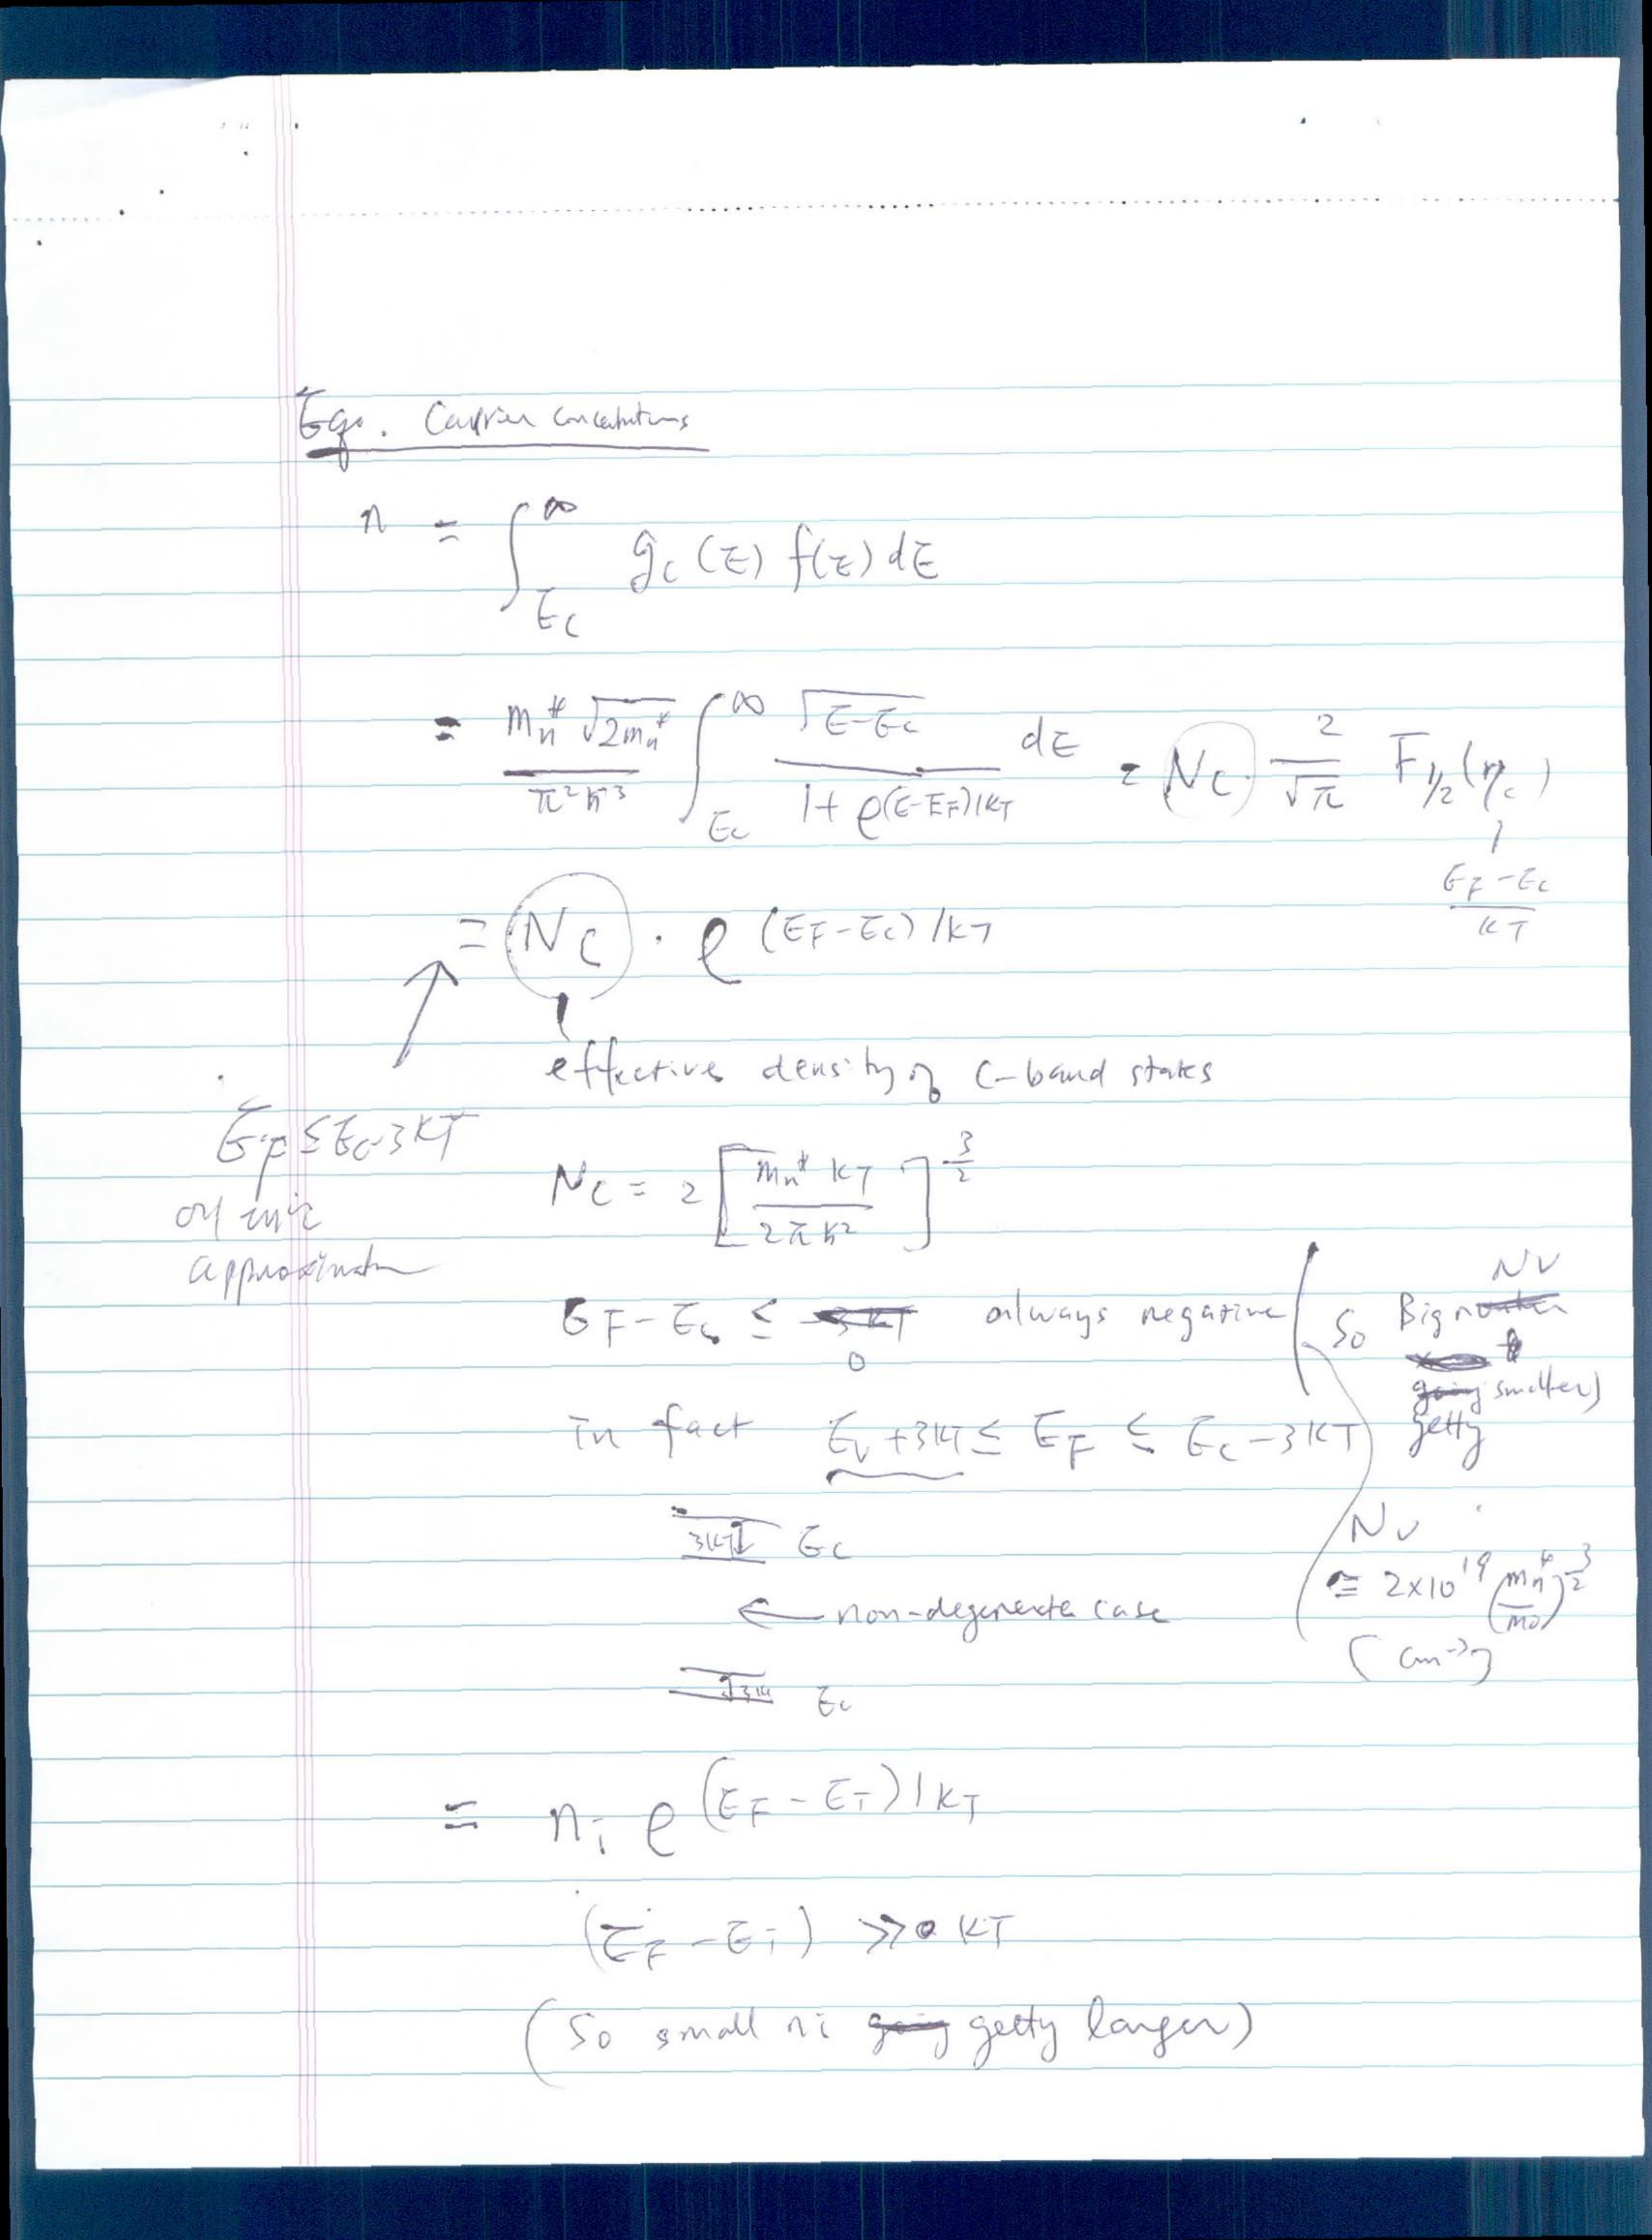 Eqn. Carrier concentrations
n = ∫_{Ec}^{∞} gc (E) f(E) dE
= mn* √2mn* / π²ħ³ ∫_{Ec}^{∞} √E-Ec / 1+ e^{(E-EF)/kT} dE = Nc · 2/√π F1/2(ηc)
EF-Ec / kT
= Nc · e^{(EF-Ec)/kT}
effective density of C-band states
EF ≤ Ec-3kT
approximation
Nc = 2 [mn* kT / 2πħ²]^{3/2}
EF - Ec ≤ 0 always negative
So Big Nv
getty smaller)
in fact Ev +3kT ≤ EF ≤ Ec -3kT
3kT Ec
Nv
≅ 2×10^{19} (mn*/m0)^{3/2}
(cm⁻³)
← non-degenerate case
3kT Ec
= ni e^{(EF - Ei)/kT}
(EF - Ei) >> kT
(So small ni getty larger)